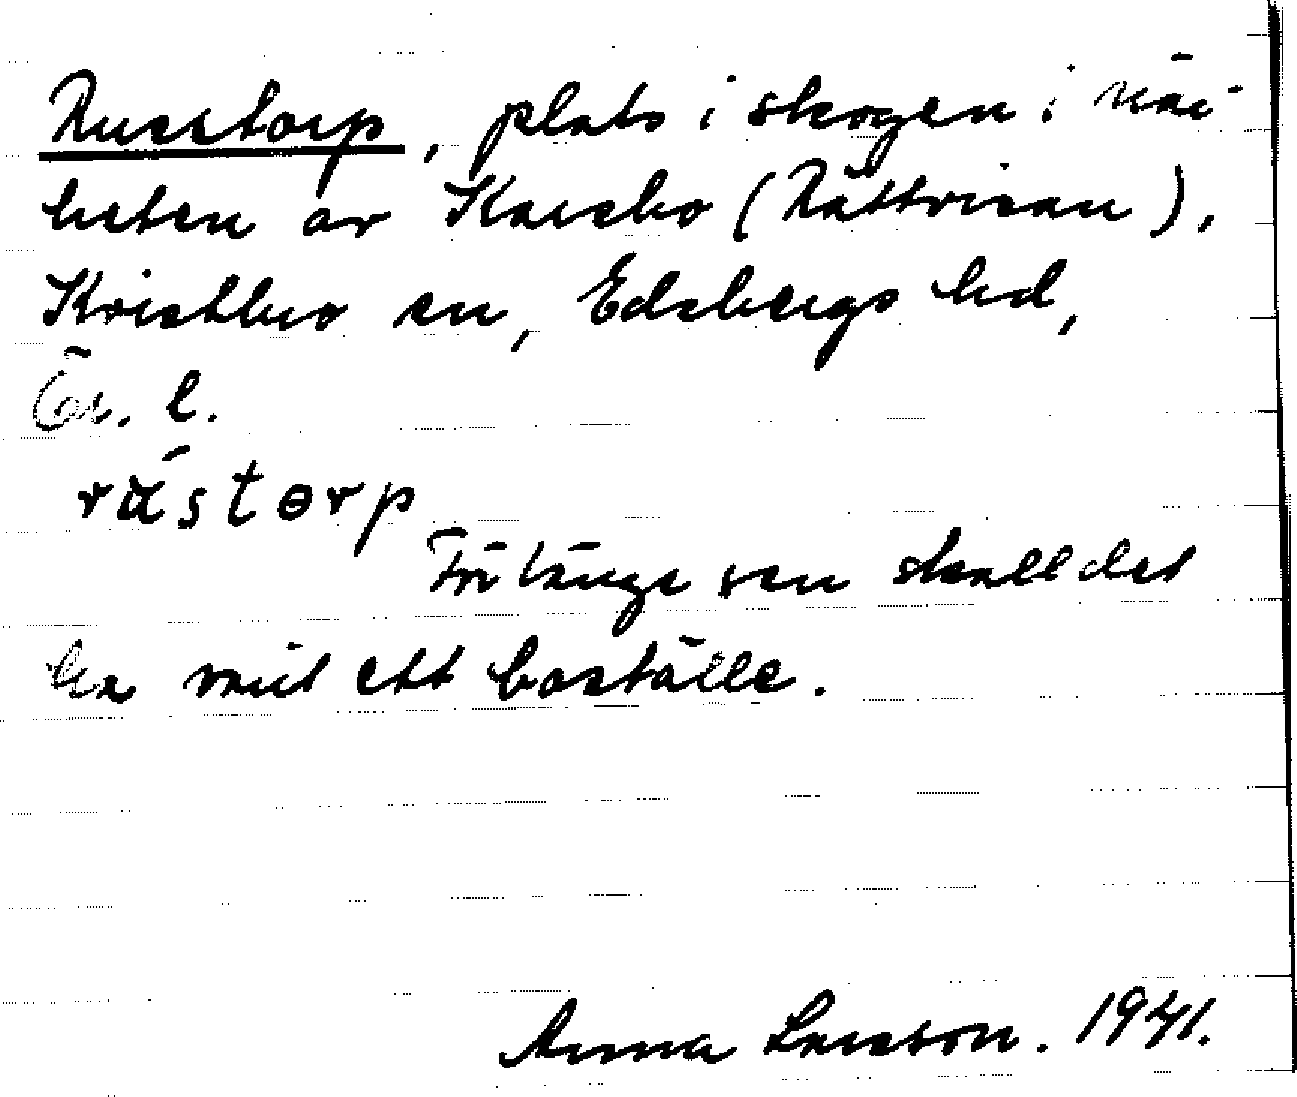 Russtorp, plats i skogen i när-
heten av Karsbo (Rättvisan),
Kristbergs sn, Edsbergs hd,
Ör. l.
rästorp
För länge sen skall det
ha varit ett boställe.
Anna Larsson. 1941.